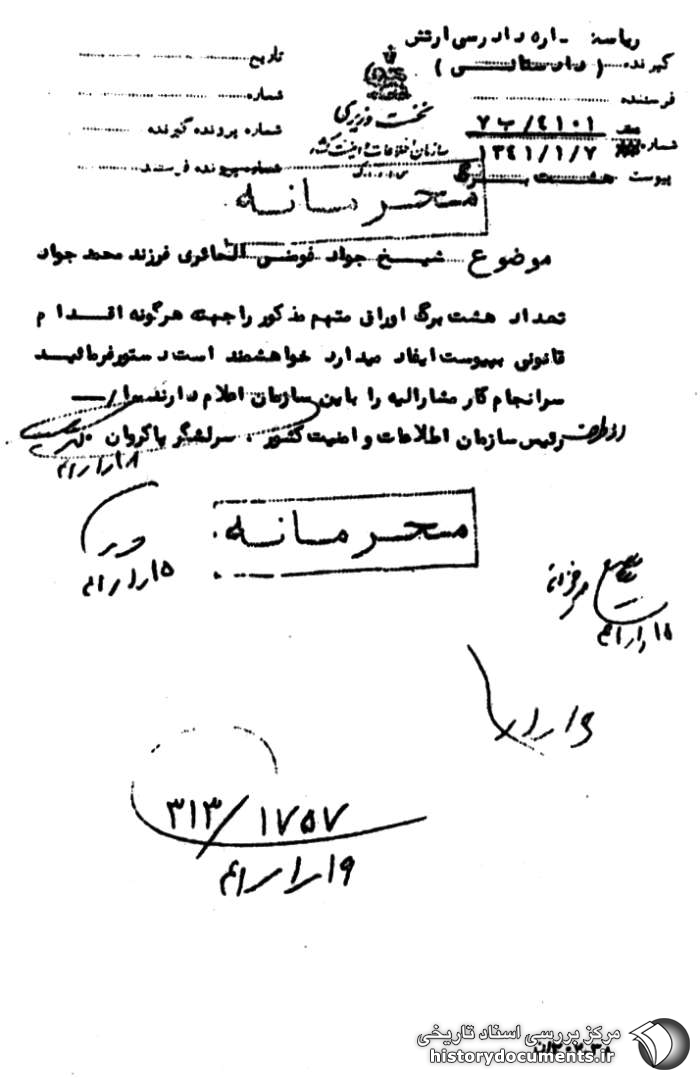 ریاست اداره دادرسی ارتش
گیرنده ( دادستانی )
فرستنده
شماره ۷ب/۴۱۰۱
۱۳۴۱/۱/۷
پیوست هشت برگ
نخست وزیری
سازمان اطلاعات و امنیت کشور
تاریخ
شماره
شماره پرونده گیرنده
شماره پرونده فرستنده
محرمانه
موضوع شیخ جواد فومنی الحائری فرزند محمد جواد
تعداد هشت برگ اوراق متهم مذکور را جهته هرگونه اقدام
قانونی بپیوست ایفاد میدارد خواهشمند است دستور فرمائید
سرانجام کار مشارالیه را باین سازمان اعلام دارند
رئیس سازمان اطلاعات و امنیت کشور ، سرلشگر پاکروان
از طرف
۱۸/۱/۴۱
محرمانه
۱۵/۱/۴۱
۳۱۳/۱۷۵۷
۱۹/۱/۴۱
مرکز بررسی اسناد تاریخی
historydocuments.ir